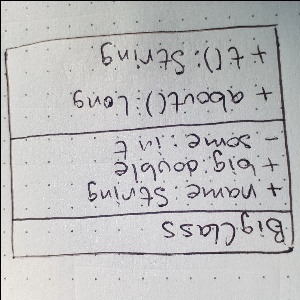 BigClass
+ name: String
+ big: double
- some: int
+ about(): Long
+ t(): String